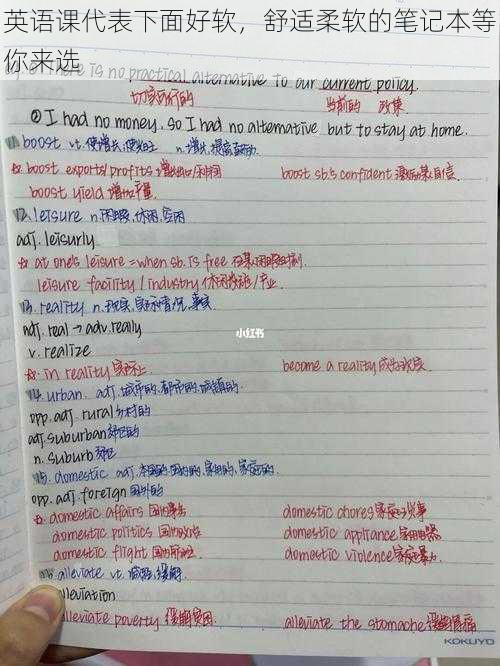 英语课代表下面好软，舒适柔软的笔记本等
你来选
There is no practical alternative to our current policy.
切实可行的 当前的 政策
②I had no money. So I had no alternative but to stay at home.
boost vt. 使增长,使兴旺 n. 增长,提高
☆ boost exports/profits 增加出口/利润 boost sb.'s confident 激励某人自信
boost yield 增加产量
12. leisure n. 闲暇,休闲,空闲
adj. leisurly
☆ at one's leisure = when sb. is free 在某人闲暇时刻
leisure facility / industry 休闲设施/产业
13. reality n. 现实,实际情况,事实
adj. real → adv. really
小红书
v. realize
☆ in reality 实际上 become a reality 成为现实
14. urban adj. 城市的,都市的,城镇的
opp. adj. rural 乡村的
adj. suburban 郊区的
n. suburb 郊区
15. domestic adj. 本国的,国内的,家用的,家庭的
opp. adj. foreign 国外的
☆ domestic affairs 国内事务 domestic chores 家庭琐事
domestic politics 国内政治 domestic appliance 家用电器
domestic flight 国内航班 domestic violence 家庭暴力
16. alleviate vt. 减轻,缓解
alleviation
alleviate poverty 缓解贫困 alleviate the stomache 缓解胃痛
KOKUYO